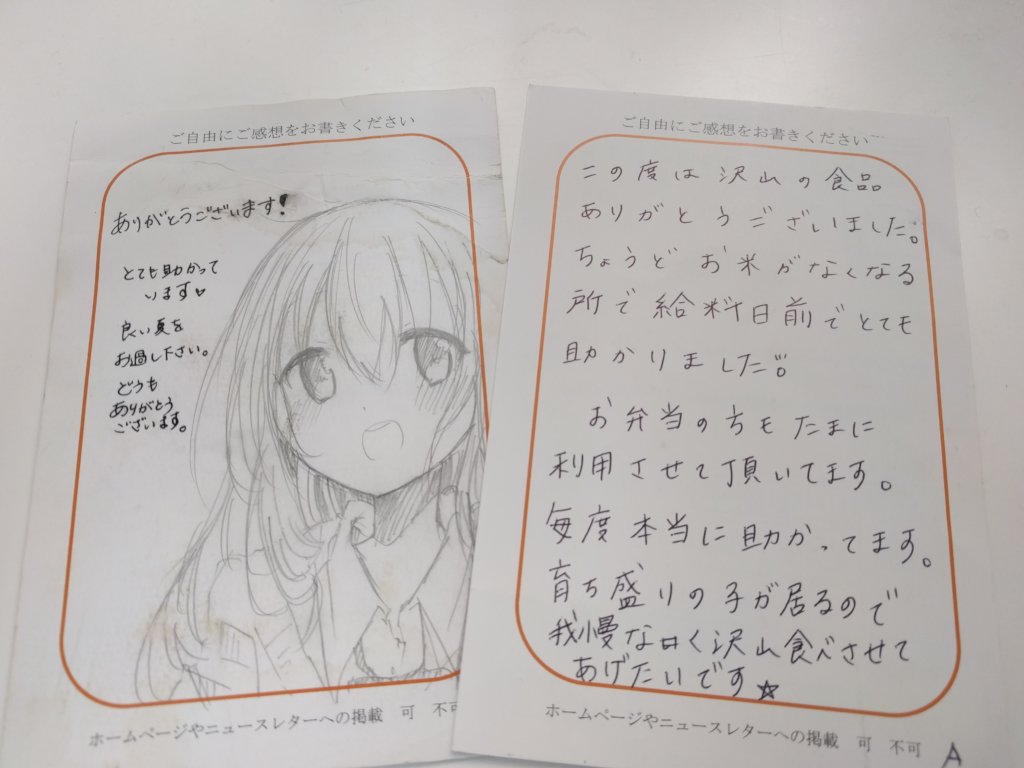 ご自由にご感想をお書きください
ありがとうございます!
とても助かって
います♡
良い夏を
お過し下さい。
どうも
ありがとう
ございます。
ホームページやニュースレターへの掲載 可 不可
ご自由にご感想をお書きください
この度は沢山の食品
ありがとうございました。
ちょうどお米がなくなる
所で給料日前でとても
助かりました。
お弁当の方もたまに
利用させて頂いてます。
毎度本当に助かってます。
育ち盛りの子が居るので
我慢なく沢山食べさせて
あげたいです☆
ホームページやニュースレターへの掲載 可 不可
A